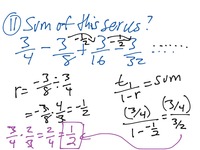 ⑪ Sum of this serus?
3/4 - 3/8 + 3/16 - 3/32 ......
×-1/2 ×-1/2
r = -3/8 ÷ 3/4
= -3/8 · 4/3 = -1/2
t₁/(1-r) = sum
(3/4)/(1--1/2) = (3/4)/(3/2)
3/4 · 2/3 = 2/4 = 1/2